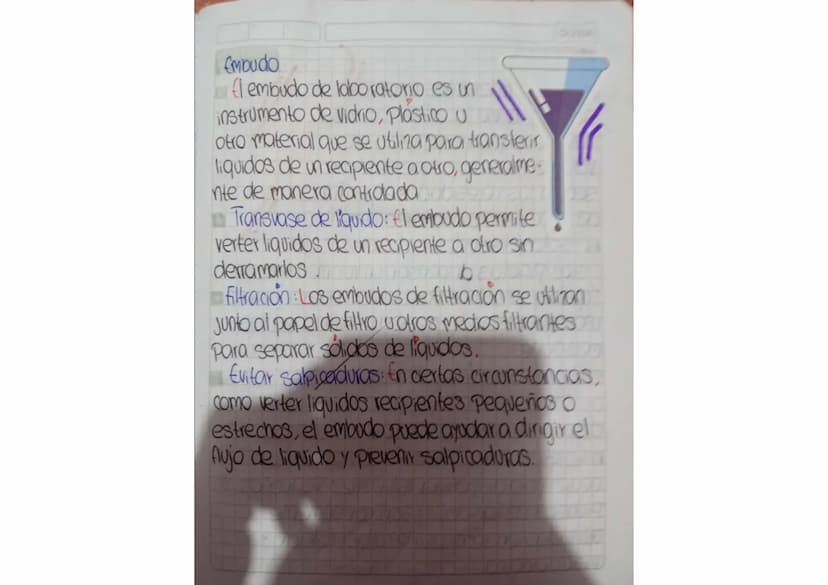 Embudo
El embudo de laboratorio es un
instrumento de vidrio, plástico u
otro material que se utiliza para transferir
liquidos de un recipiente a otro, generalme-
nte de manera controlada
Transvase de líquido: El embudo permite
verter liquidos de un recipiente a otro sin
derramarlos.
Filtración: Los embudos de filtración se utilizan
junto al papel de filtro u otros medios filtrantes
para separar sólidos de líquidos.
Evitar salpicaduras: En certas circunstancias,
como verter liquidos recipientes pequeños o
estrechos, el embudo puede ayudar a dirigir el
flujo de liquido y prevenir salpicaduras.